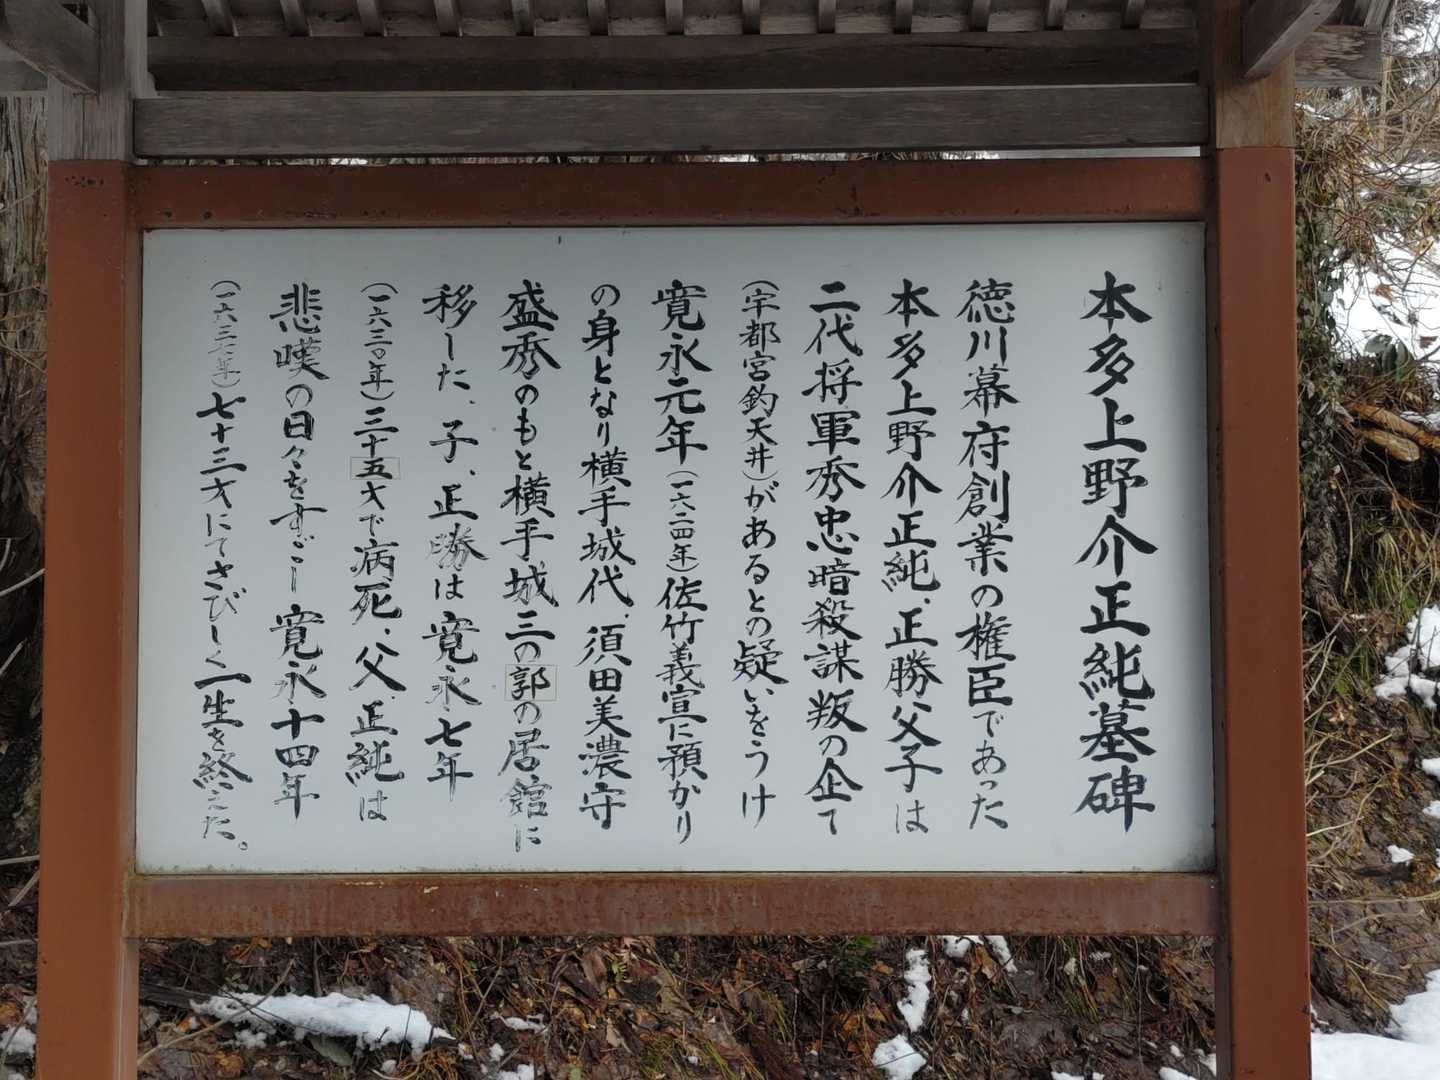 本多上野介正純墓碑
徳川幕府創業の権臣であった
本多上野介正純、正勝父子は
二代将軍秀忠暗殺謀叛の企て
（宇都宮釣天井）があるとの疑いをうけ
寛永元年（一六二四年）佐竹義宣に預かり
の身となり横手城代、須田美濃守
盛秀のもと横手城三の郭の居館に
移した、子、正勝は寛永七年
（一六三〇年）三十五才で病死、父、正純は
悲嘆の日々をすごし寛永十四年
（一六三七年）七十三才にてさびしく一生を終えた。